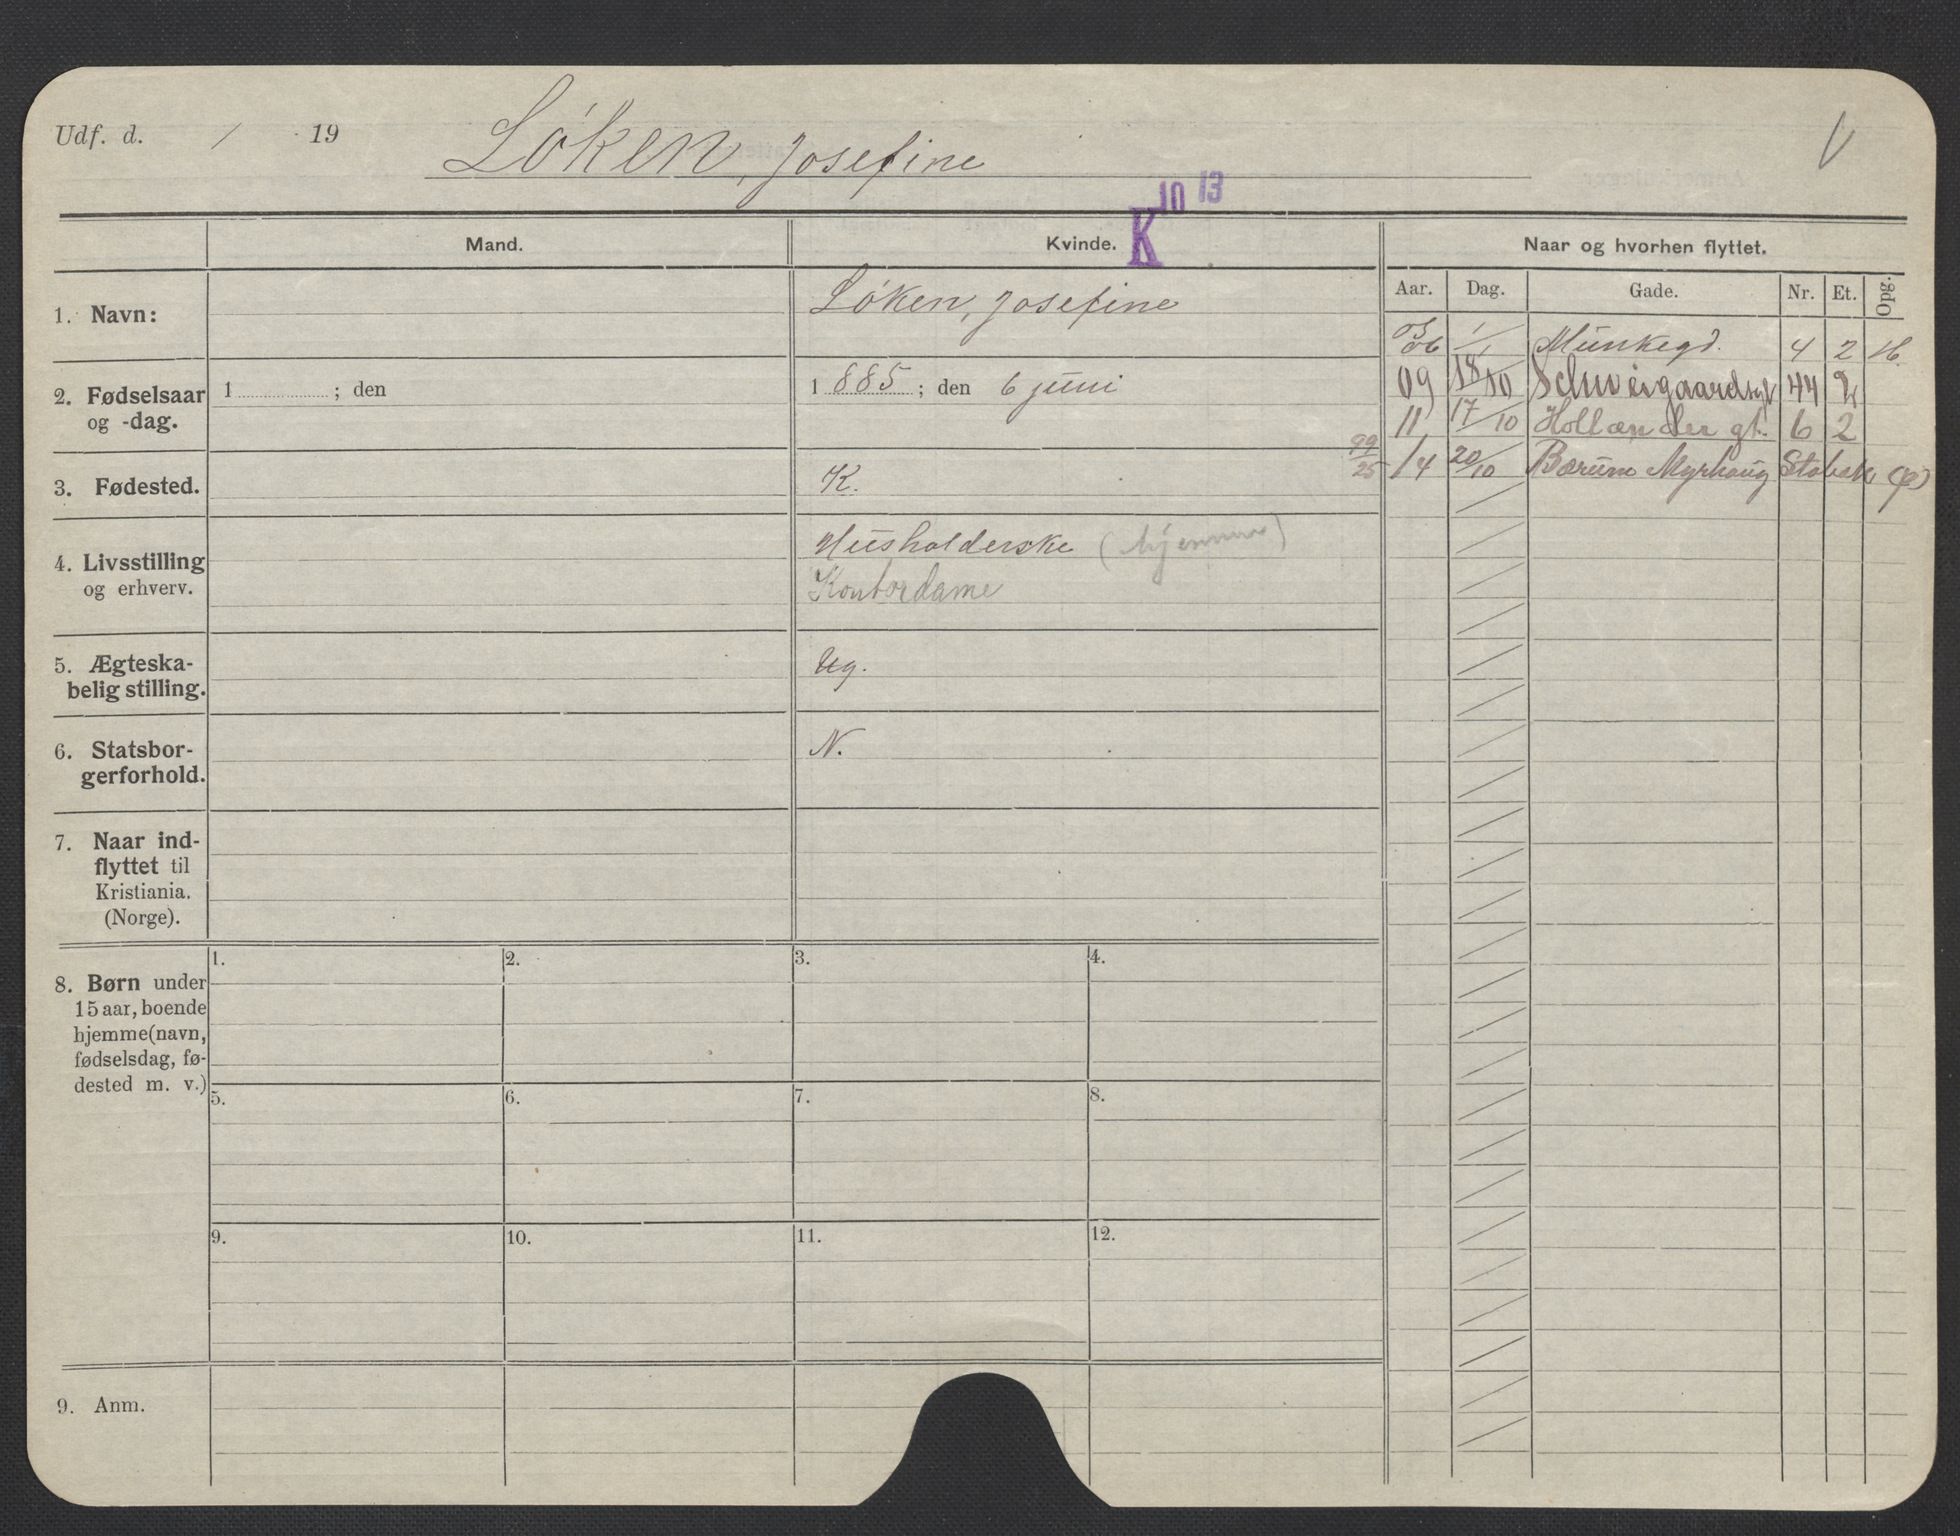 Udf. d. / 19
Løken, Josefine
V
K 10 13
Mand.
Kvinde.
Naar og hvorhen flyttet.
Aar. Dag. Gade. Nr. Et. Opg.
1. Navn:
Løken, Josefine
06 1/1 Munkegd. 4 2
2. Fødselsaar
og -dag.
1 ; den
1 885 ; den 6 juni
09 18/10 Schweigaardsgt 44 2
11 17/10 Hollændergt. 6 2
99/25 14 20/10 Bærum Myrhaug Stabæk
3. Fødested.
K.
4. Livsstilling
og erhverv.
Husholderske (hjemme)
Kontordame
5. Ægteska-
belig stilling.
Ug.
6. Statsbor-
gerforhold.
N.
7. Naar ind-
flyttet til
Kristiania.
(Norge).
8. Børn under
15 aar, boende
hjemme (navn,
fødselsdag, fø-
dested m. v.)
1. 2. 3. 4.
5. 6. 7. 8.
9. 10. 11. 12.
9. Anm.